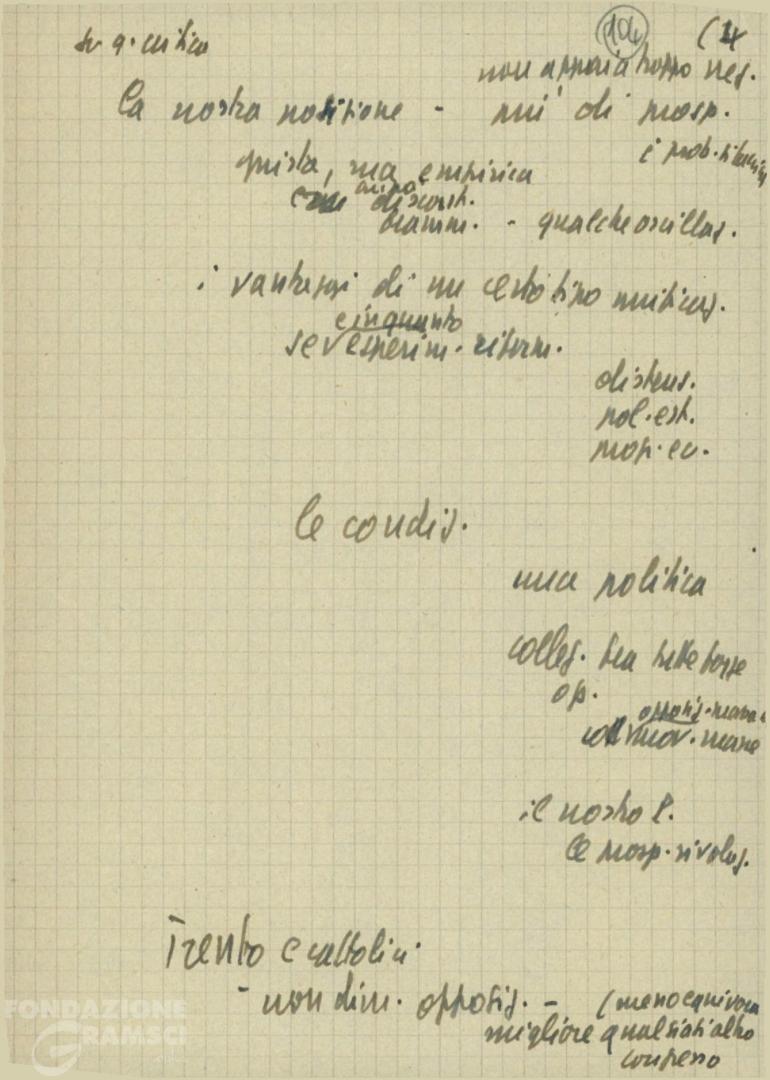 su q. critica
104 (4
non apparia troppo neg.
la nostra posizione - più di prosp.
giusta, ma empirica
i prob.
discont.
framm. - qualche oscillaz.
i vantaggi di un certo tipo
in quanto
se v esperim. riform.
distens.
pol. est.
prosp. ec.
le condiz.
una politica
colleg. tra tutte forze
op.
opposiz.
mov. masse
il nostro P.
le prosp. rivoluz.
Trento e cattolici
- non dim. opposiz. - (meno equivoca
migliore qualsiasi altro
congresso
FONDAZIONE
GRAMSCI